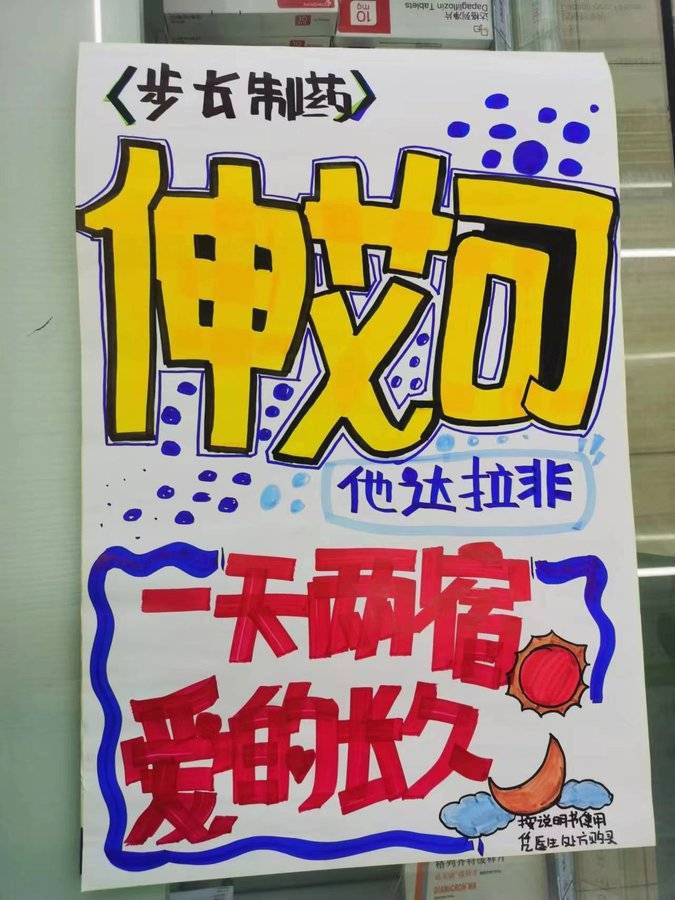 10
mg
达格列净片
Dapagliflozin Tablets
〈步长制药〉
伸艾司
他达拉非
一天两宿
爱的长久
按说明书使用
凭医生处方购买